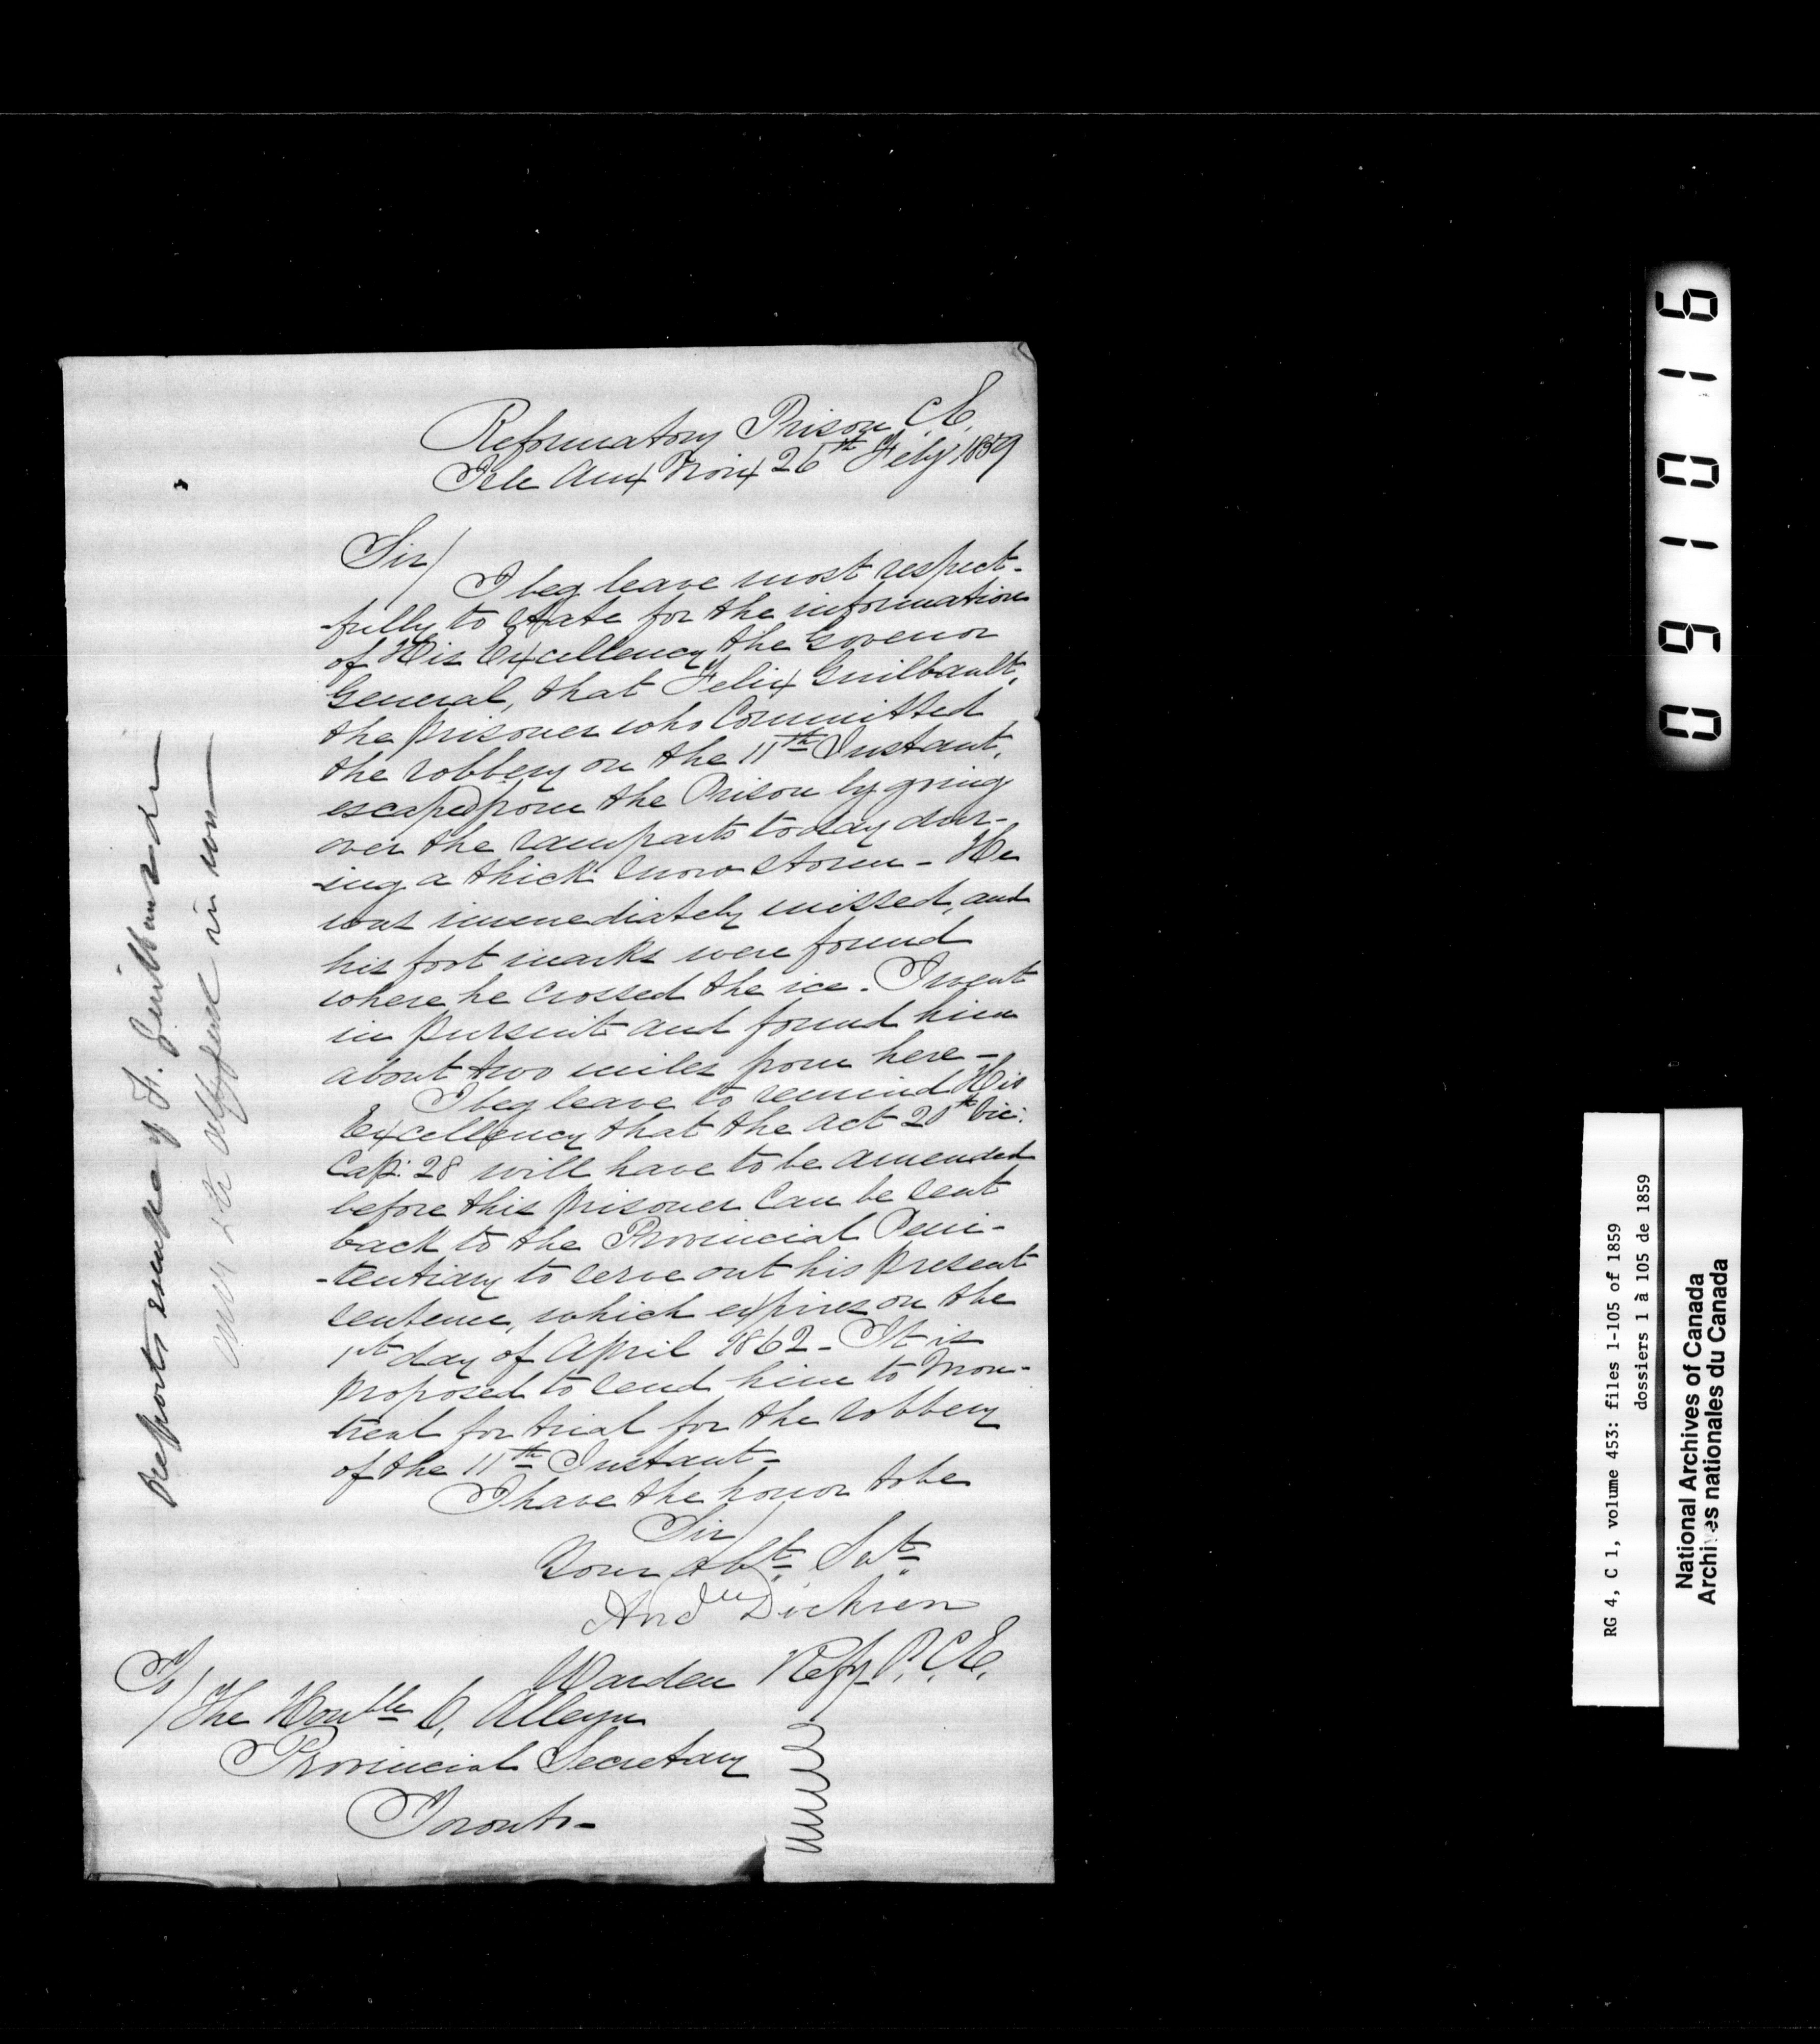 Reformatory Prison C.E.
Isle Aux Noix 26th Feby 1859
Sir/
I beg leave most respect-
-fully to state for the information
of His Excellency the Govenor
General, that Felix Guilbault,
the prisoner who Committed
the robbery on the 11th Instant,
escaped from the Prison by going
over the ramparts today dur-
-ing a thick snow storm - He
was immediately missed, and
his foot marks were found
where he crossed the ice. I went
in pursuit and found him
about two miles from here -
I beg leave to remind His
Excellency that the act 20th Vic:
Cap: 28 will have to be amended
before this prisoner can be sent
back to the Provincial Peni-
-tentiary to serve out his present
sentence, which expires on the
1st day of April 1862 - It is
proposed to send him to Mon-
-treal for trial for the robbery
of the 11th Instant -
I have the honor to be
Sir/
Your Obt. Svt.
Andw Dickson
Warden Refy P.C.E.
To/
The Honble C. Alleyn
Provincial Secretary
Toronto -
Reports escape of F. Guilbault
091016
RG 4, C 1, volume 453: files 1-105 of 1859
dossiers 1 à 105 de 1859
National Archives of Canada
Archives nationales du Canada